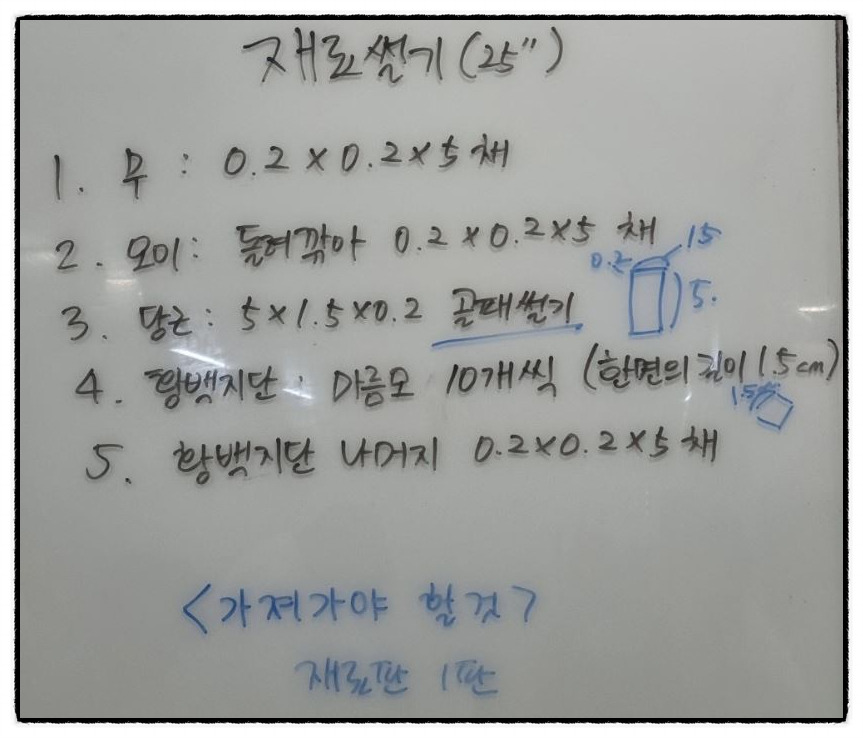 재료썰기(25")
1. 무 : 0.2 × 0.2 × 5 채
2. 오이: 돌려깎아 0.2 × 0.2 × 5 채
15
0.2
3. 당근: 5 × 1.5 × 0.2 골패썰기
5.
4. 황백지단: 마름모 10개씩 (한면의 길이 1.5cm)
5. 황백지단 나머지 0.2 × 0.2 × 5 채
<가져가야 할것>
재료판 1판